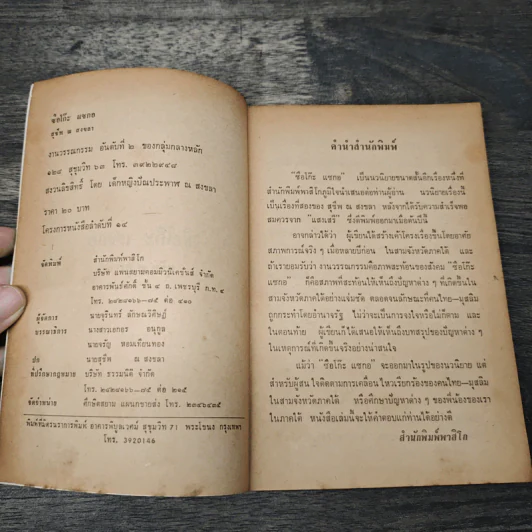 ซือโก๊ะ แซกอ
สุชีพ ณ สงขลา
งานวรรณกรรม อันดับที่ ๒ ของกลุ่มกลางหลัก
๑๒๘ สุขุมวิท ๖๓ โทร. ๓๙๒๒๙๔๘
สงวนลิขสิทธิ์ โดย เด็กหญิงปัณประพาฬ ณ สงขลา
ราคา ๒๐ บาท
โครงการหนังสือลำดับที่ ๑๔
จัดพิมพ์ สำนักพิมพ์พาสิโก
บริษัท แพนสยามคอมมิวนิเคชั่นส์ จำกัด
อาคารพันธ์ภักดี ชั้น ๔ ถ. เพชรบุรี ก.ท. ๔
โทร. ๒๔๒๘๑๖๖—๗๕ ต่อ ๔๑๐
ผู้จัดการ นายจุรินทร์ ลักษณวิศิษฏ์
บรรณาธิการ นางสาวเอกอร อนุกูล
นายจรัญ หอมเทียนทอง
ปก นายสุชีพ ณ สงขลา
ที่ปรึกษากฎหมาย บริษัท ธรรมนิติ จำกัด
โทร. ๒๔๒๘๑๖๖—๗๕ ต่อ ๒๑๕
จัดจำหน่าย ศึกษิตสยาม แผนกขายส่ง โทร. ๒๓๔๖๔๘๕
พิมพ์ที่นครนราธารพิมพ์ อาคารพิบูลเวศม์ สุขุมวิท 71 พระโขนง กรุงเทพฯ
โทร. 3920146
คำนำสำนักพิมพ์
“ซือโก๊ะ แซกอ” เป็นนวนิยายขนาดสั้นอีกเรื่องหนึ่งที่
สำนักพิมพ์พาสิโกภูมิใจนำเสนอต่อท่านผู้อ่าน นวนิยายเรื่องนี้
เป็นเรื่องที่สองของ สุชีพ ณ สงขลา หลังจากได้รับความสำเร็จพอ
สมควรจาก “แสงเสรี” ซึ่งตีพิมพ์ออกมาเมื่อต้นปีนี้
อาจกล่าวได้ว่า ผู้เขียนได้สร้างเค้าโครงเรื่องขึ้นโดยอาศัย
สภาพการณ์จริง ๆ เมื่อหลายปีก่อน ในสามจังหวัดภาคใต้ และ
ถ้าเรายอมรับว่า งานวรรณกรรมคือภาพสะท้อนของสังคม “ซือโก๊ะ
แซกอ” ก็คือสภาพที่สะท้อนให้เห็นถึงปัญหาต่าง ๆ ที่เกิดขึ้นใน
สามจังหวัดภาคใต้อย่างแจ่มชัด ตลอดจนลักษณะที่คนไทย—มุสลิม
ถูกกระทำโดยอำนาจรัฐ ไม่ว่าจะเป็นการจงใจหรือไม่ก็ตาม และ
ในตอนท้าย ผู้เขียนก็ได้เสนอให้เห็นถึงบทสรุปของปัญหาต่าง ๆ
ในเหตุการณ์ที่เกิดขึ้นจริงอย่างน่าสนใจ
แม้ว่า “ซือโก๊ะ แซกอ” จะออกมาในรูปของนวนิยาย แต่
สำหรับผู้สนใจติดตามการเคลื่อนไหวเรียกร้องของคนไทย—มุสลิม
ในสามจังหวัดภาคใต้ หรือศึกษาปัญหาต่าง ๆ ของพี่น้องของเรา
ในภาคใต้ หนังสือเล่มนี้จะให้คำตอบแก่ท่านได้อย่างดี
สำนักพิมพ์พาสิโก